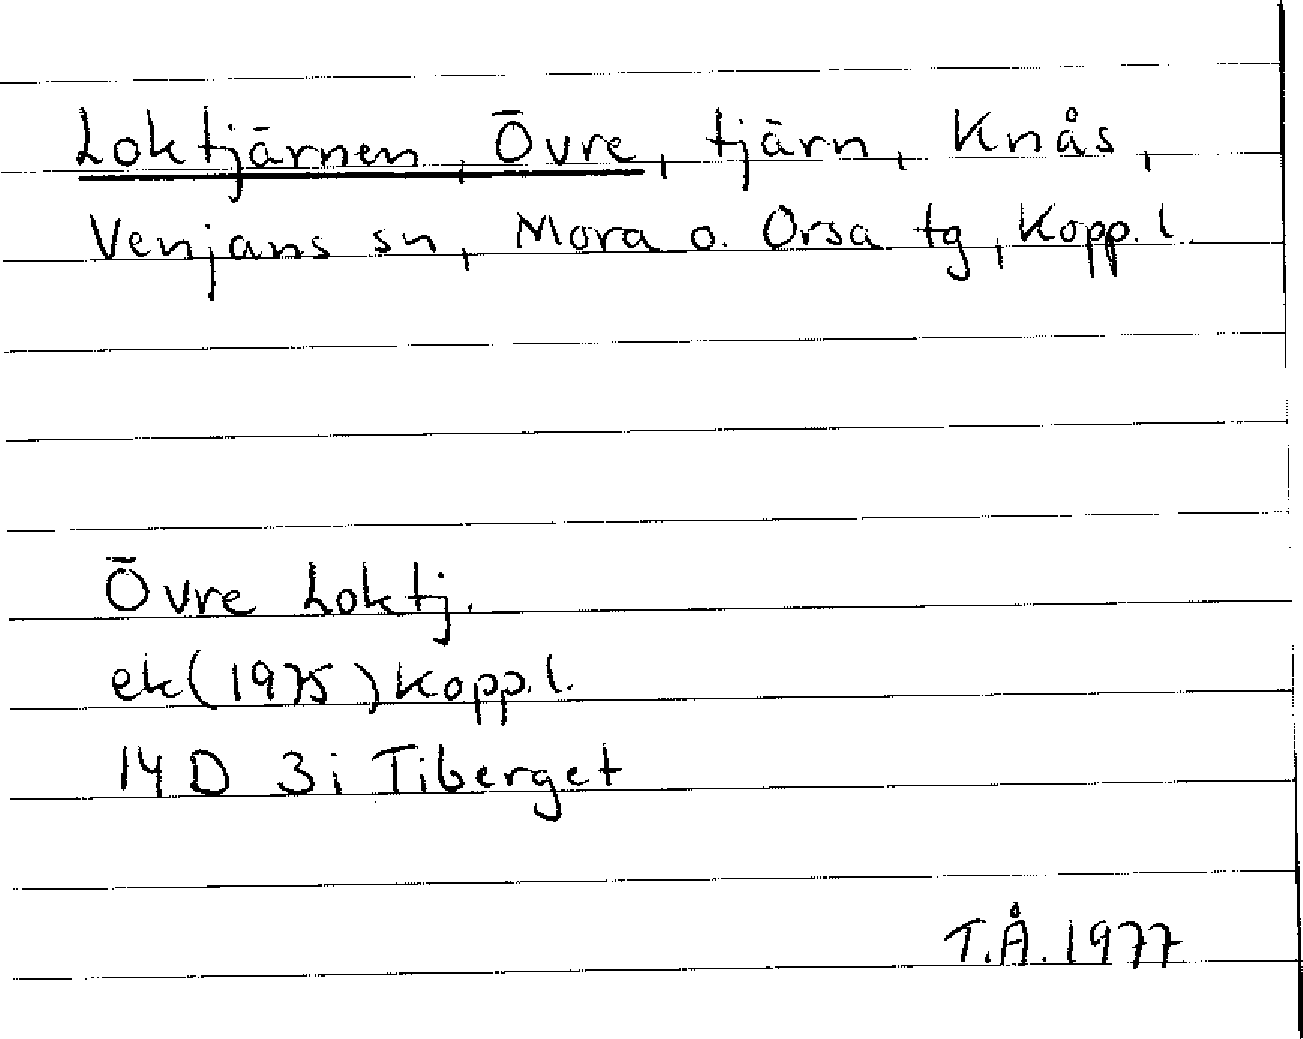 Loktjärnen, Övre, tjärn, Knås,
Venjans sn, Mora o. Orsa tg, Kopp. l.
Övre Loktj.
ek (1975) Kopp. l.
14 D 3i Tiberget
T.Å. 1977